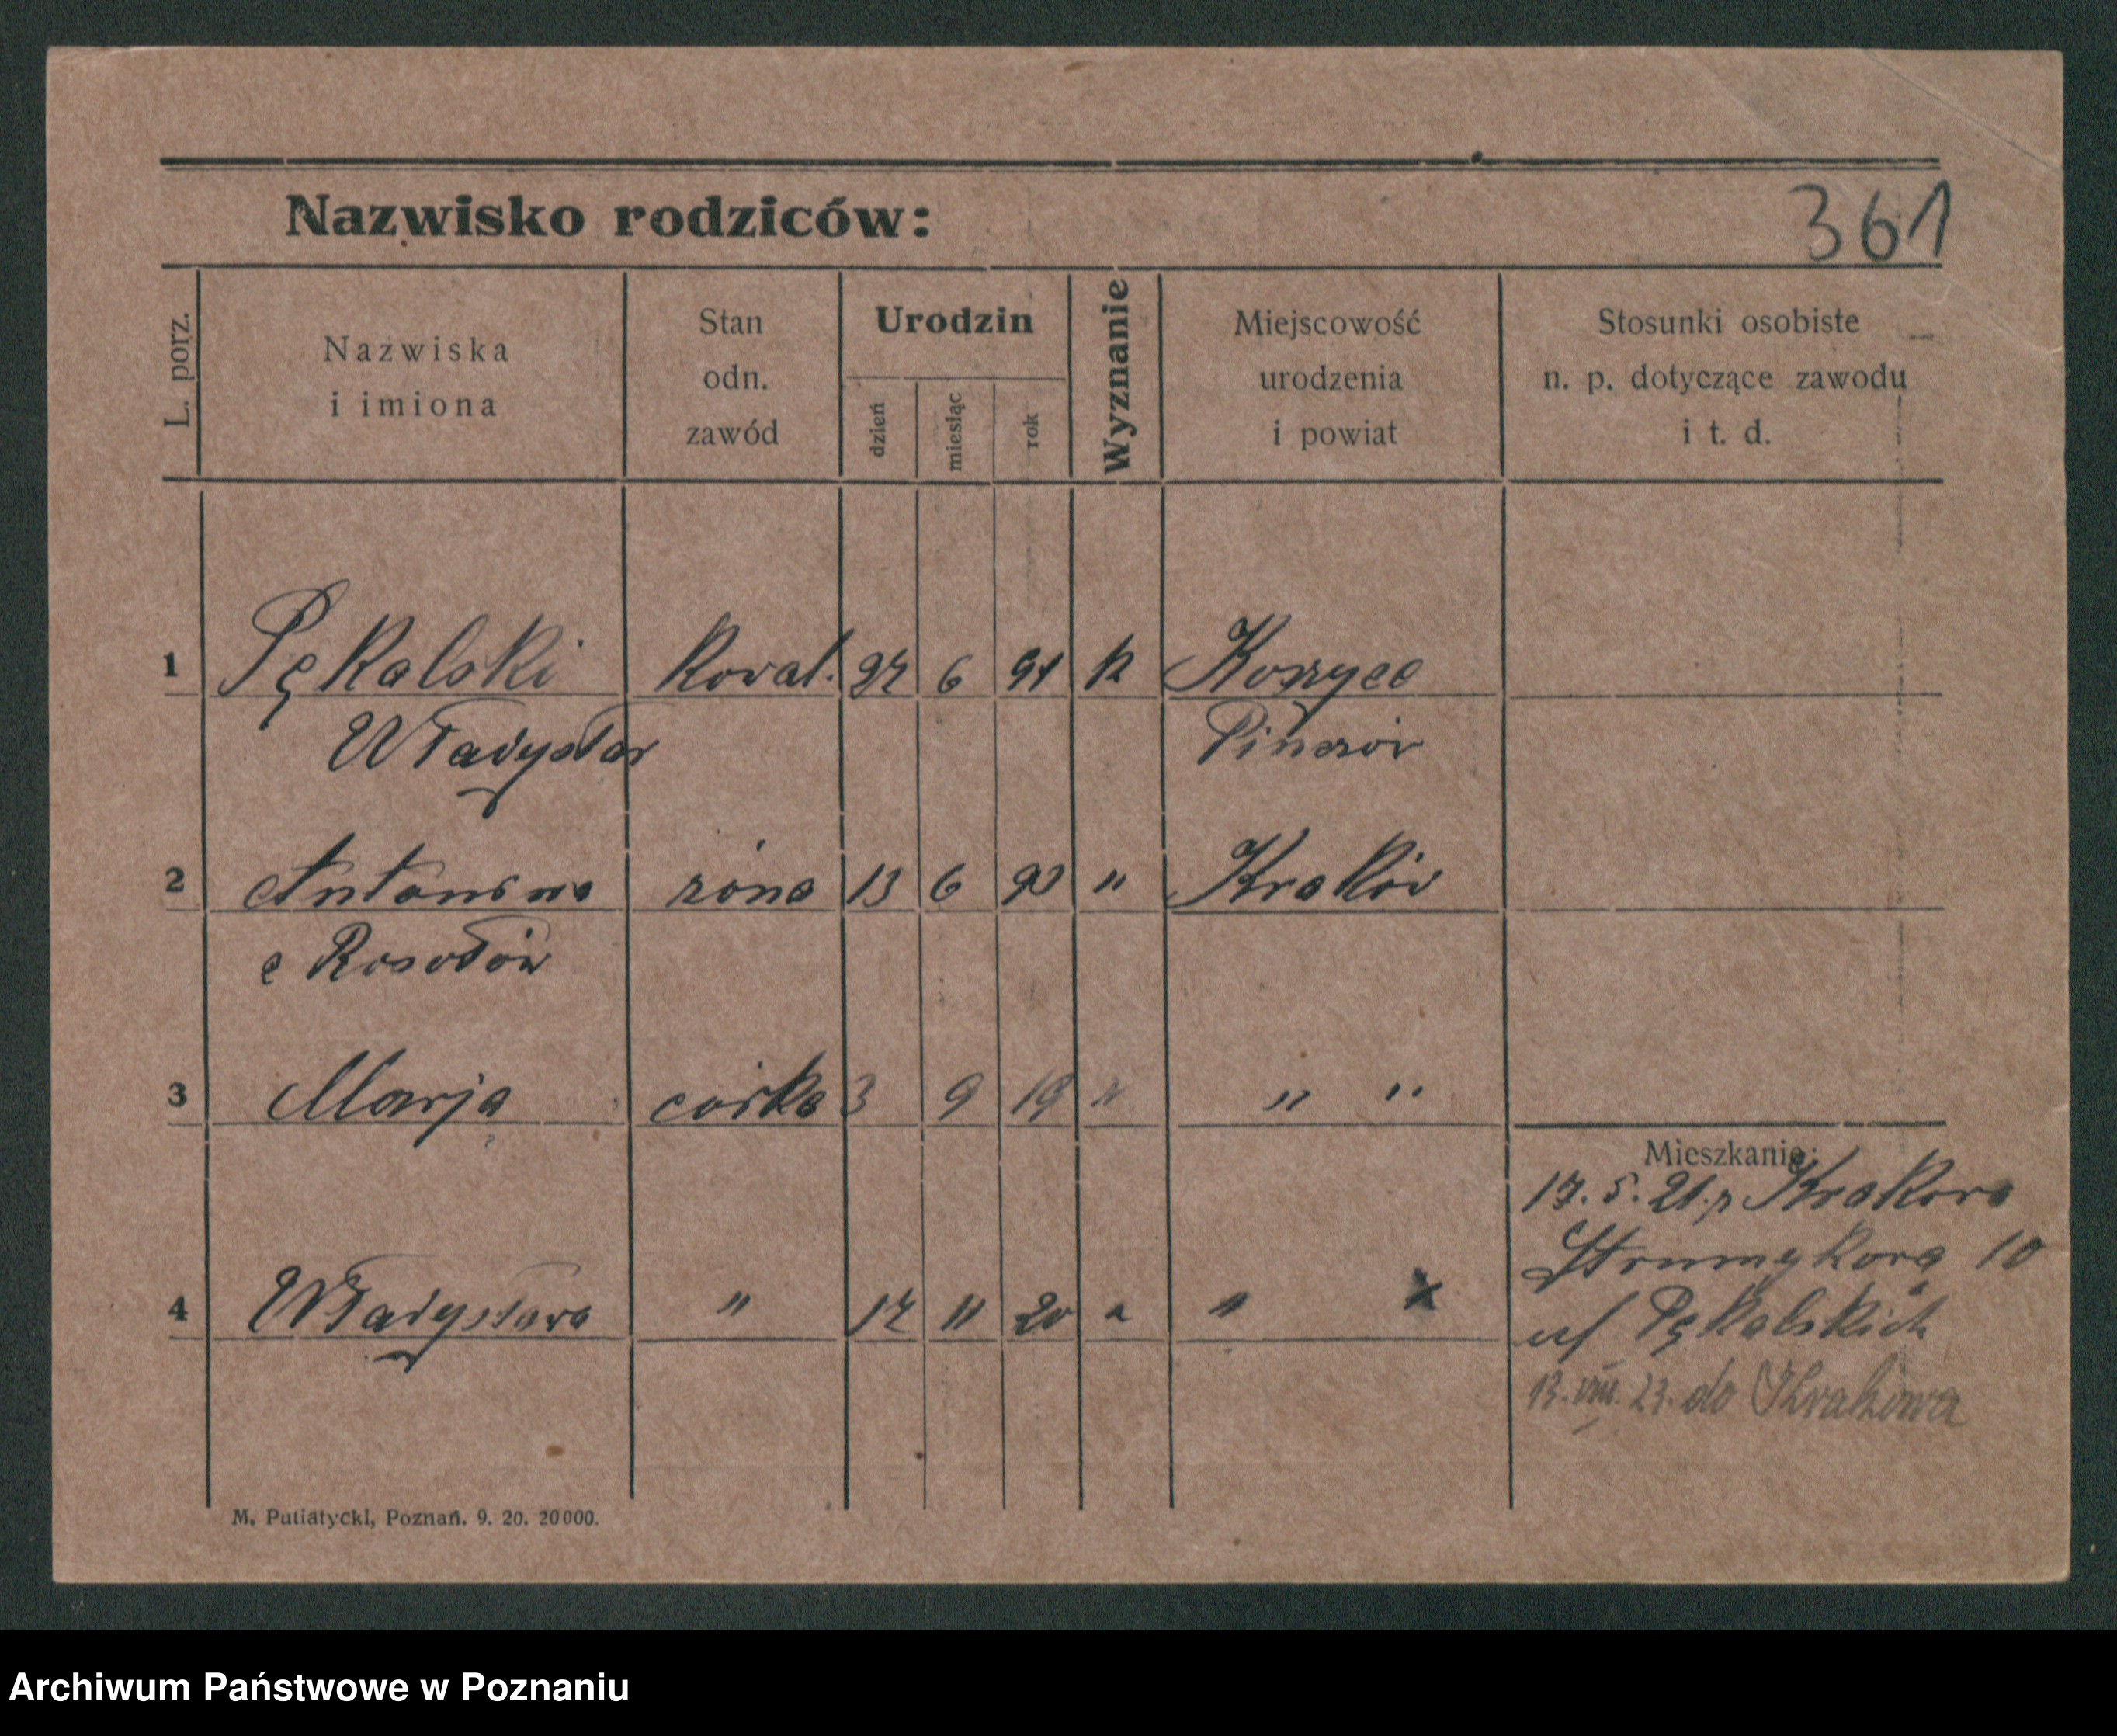 361
Nazwisko rodziców:
L. porz.
Nazwiska
i imiona
Stan
odn.
zawód
Urodzin
dzień
miesiąc
rok
Wyznanie
Miejscowość
urodzenia
i powiat
Stosunki osobiste
n. p. dotyczące zawodu
i t. d.
1 Pękalski kowal. 27 6 91 k Koszyce
Władysław Pinczów
2 Antonina żona 13 6 90 " Kraków
z Rosołów
3 Marja córka 3 9 19 " " "
Mieszkanie:
17. 5. 21. z Krakowa
Strumykowa 10
4 Władysława " 17 11 20 " "
u/ Pękalskich
13. VIII. 23. do Krakowa
M. Putiatycki, Poznań. 9. 20. 20000.
Archiwum Państwowe w Poznaniu